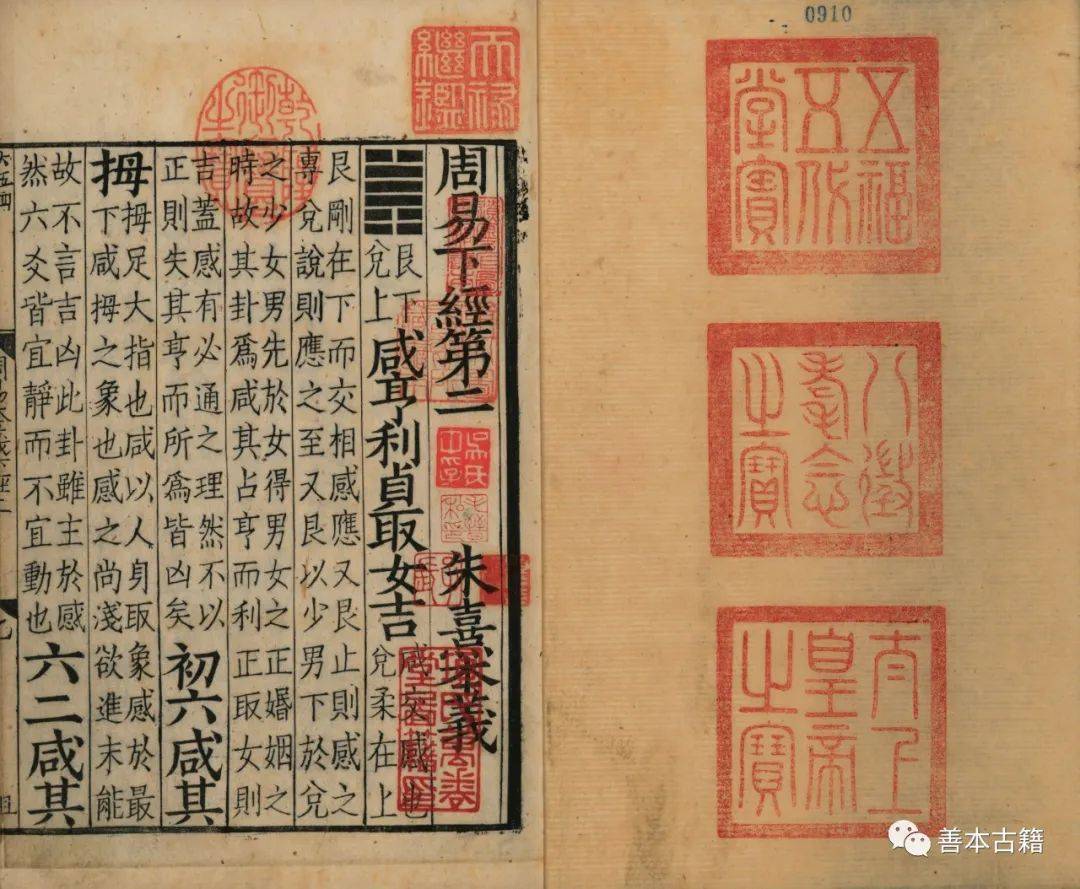 0910
五福五代堂寶
八徵耄念之寶
太上皇帝之寶
天祿繼鑑
乾隆御覽之寶
周易下經第二 朱熹本義
艮下
兌上
咸亨利貞取女吉
咸交感也
兌柔在上
艮剛在下而交相感應又艮止則感之
專兌說則應之至又艮以少男下於兌
之少女男先於女得男女之正婚姻之
時故其卦爲咸其占亨而利正取女則
吉蓋感有必通之理然不以
正則失其亨而所爲皆凶矣
初六咸其
拇
拇足大指也咸以人身取象感於最
下咸拇之象也感之尚淺欲進未能
故不言吉凶此卦雖主於感
然六爻皆宜靜而不宜動也
六二咸其
善本古籍